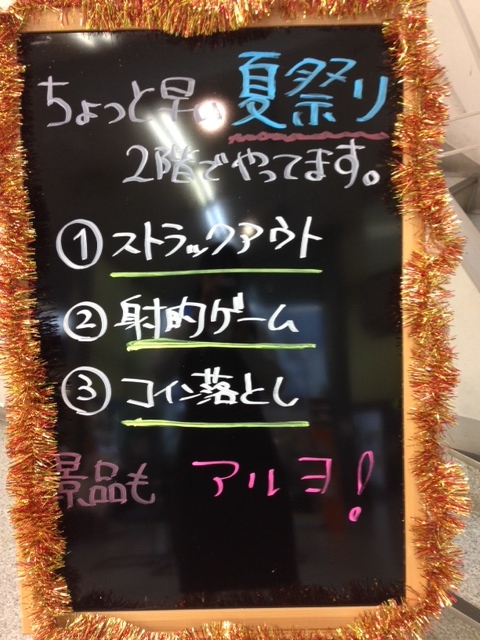 ちょっと早い夏祭り
2階でやってます。
① ストラックアウト
② 射的ゲーム
③ コイン落とし
景品も アルヨ!